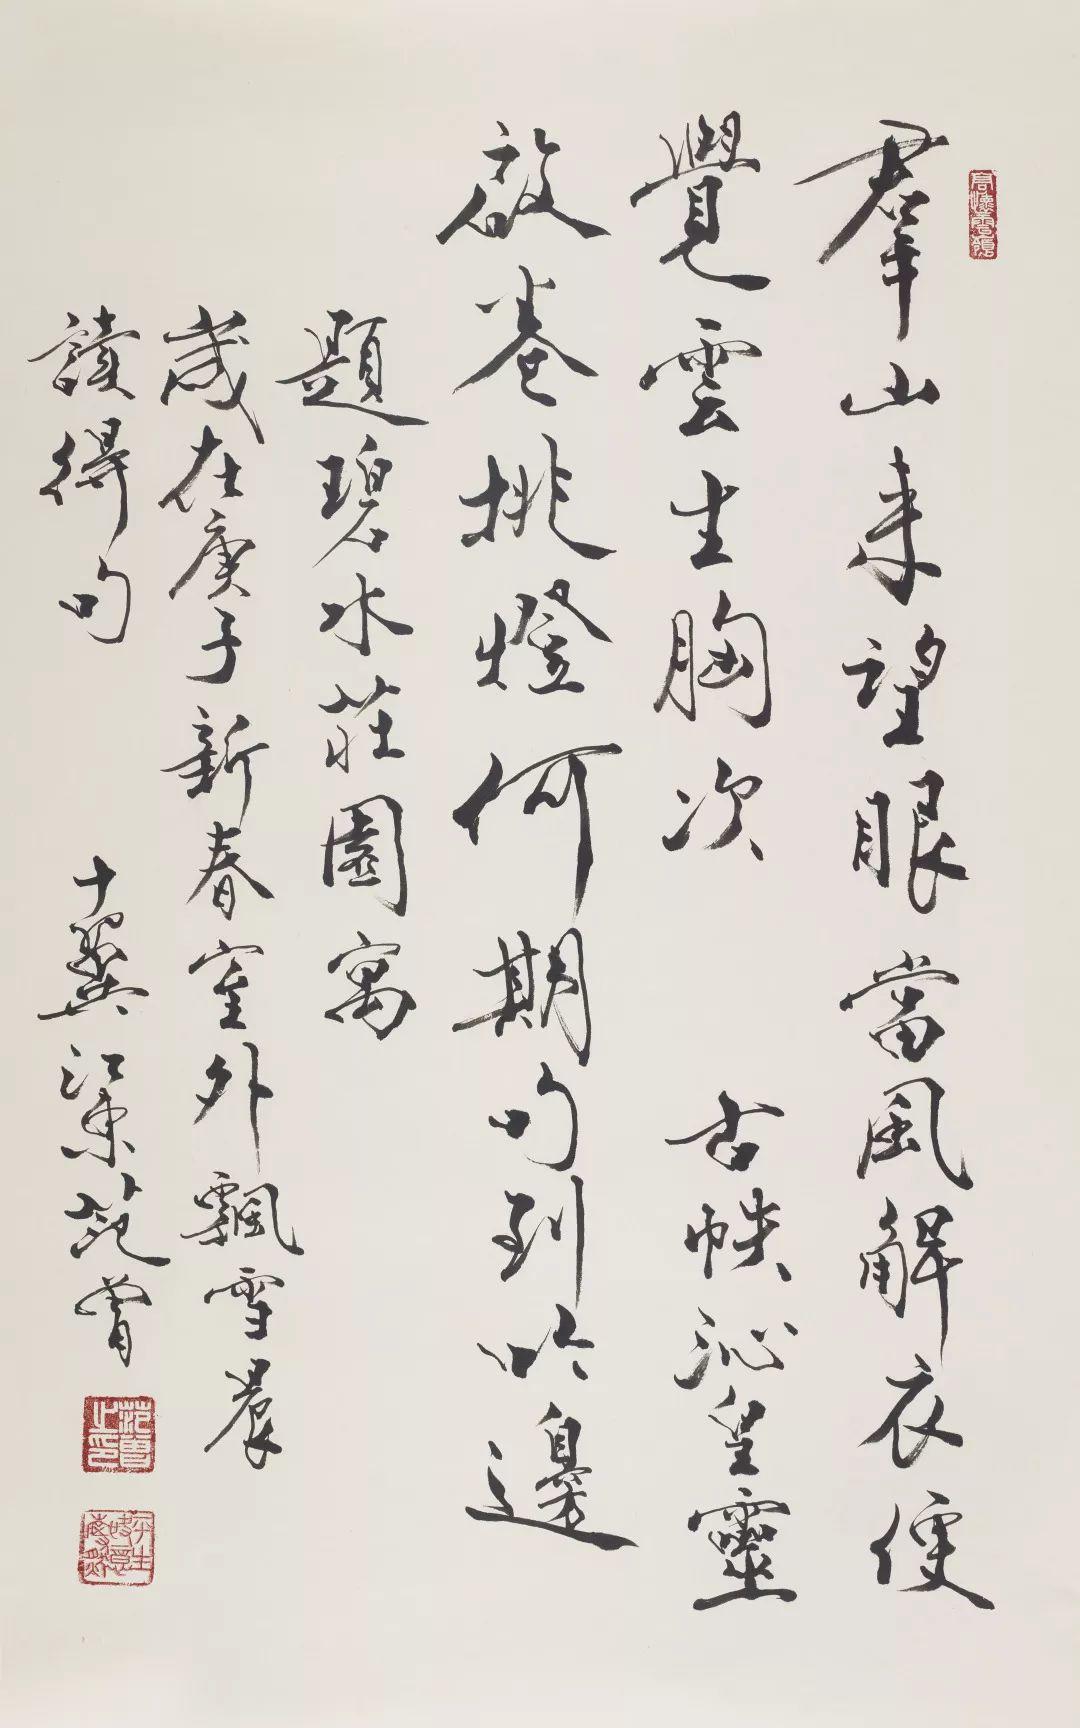 羣山来望眼當風解衣便
覺雲生胸次 古帙沁皇靈
啟卷挑燈何期句到吟邊
題碧水莊園寓
歲在庚子新春室外飄雪晨
讀得句 十翼江東范曾
范曾之印